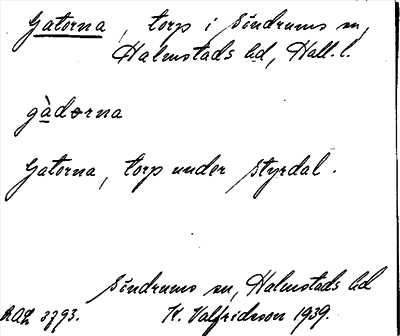 Gatorna, torp i Söndrums sn,
Halmstads hd, Hall. l.
gàdorna
Gatorna, torp under Styrdal.
Söndrums sn, Halmstads hd
RAÄ 3793. K. Valfridsson 1939.